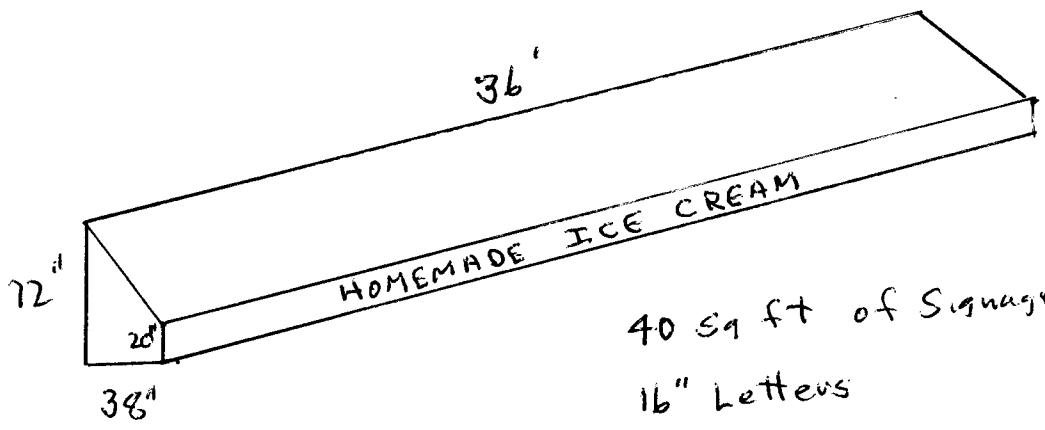 36'
HOMEMADE ICE CREAM
72"
20"
38"
40 sq ft of Signage
16" Letters